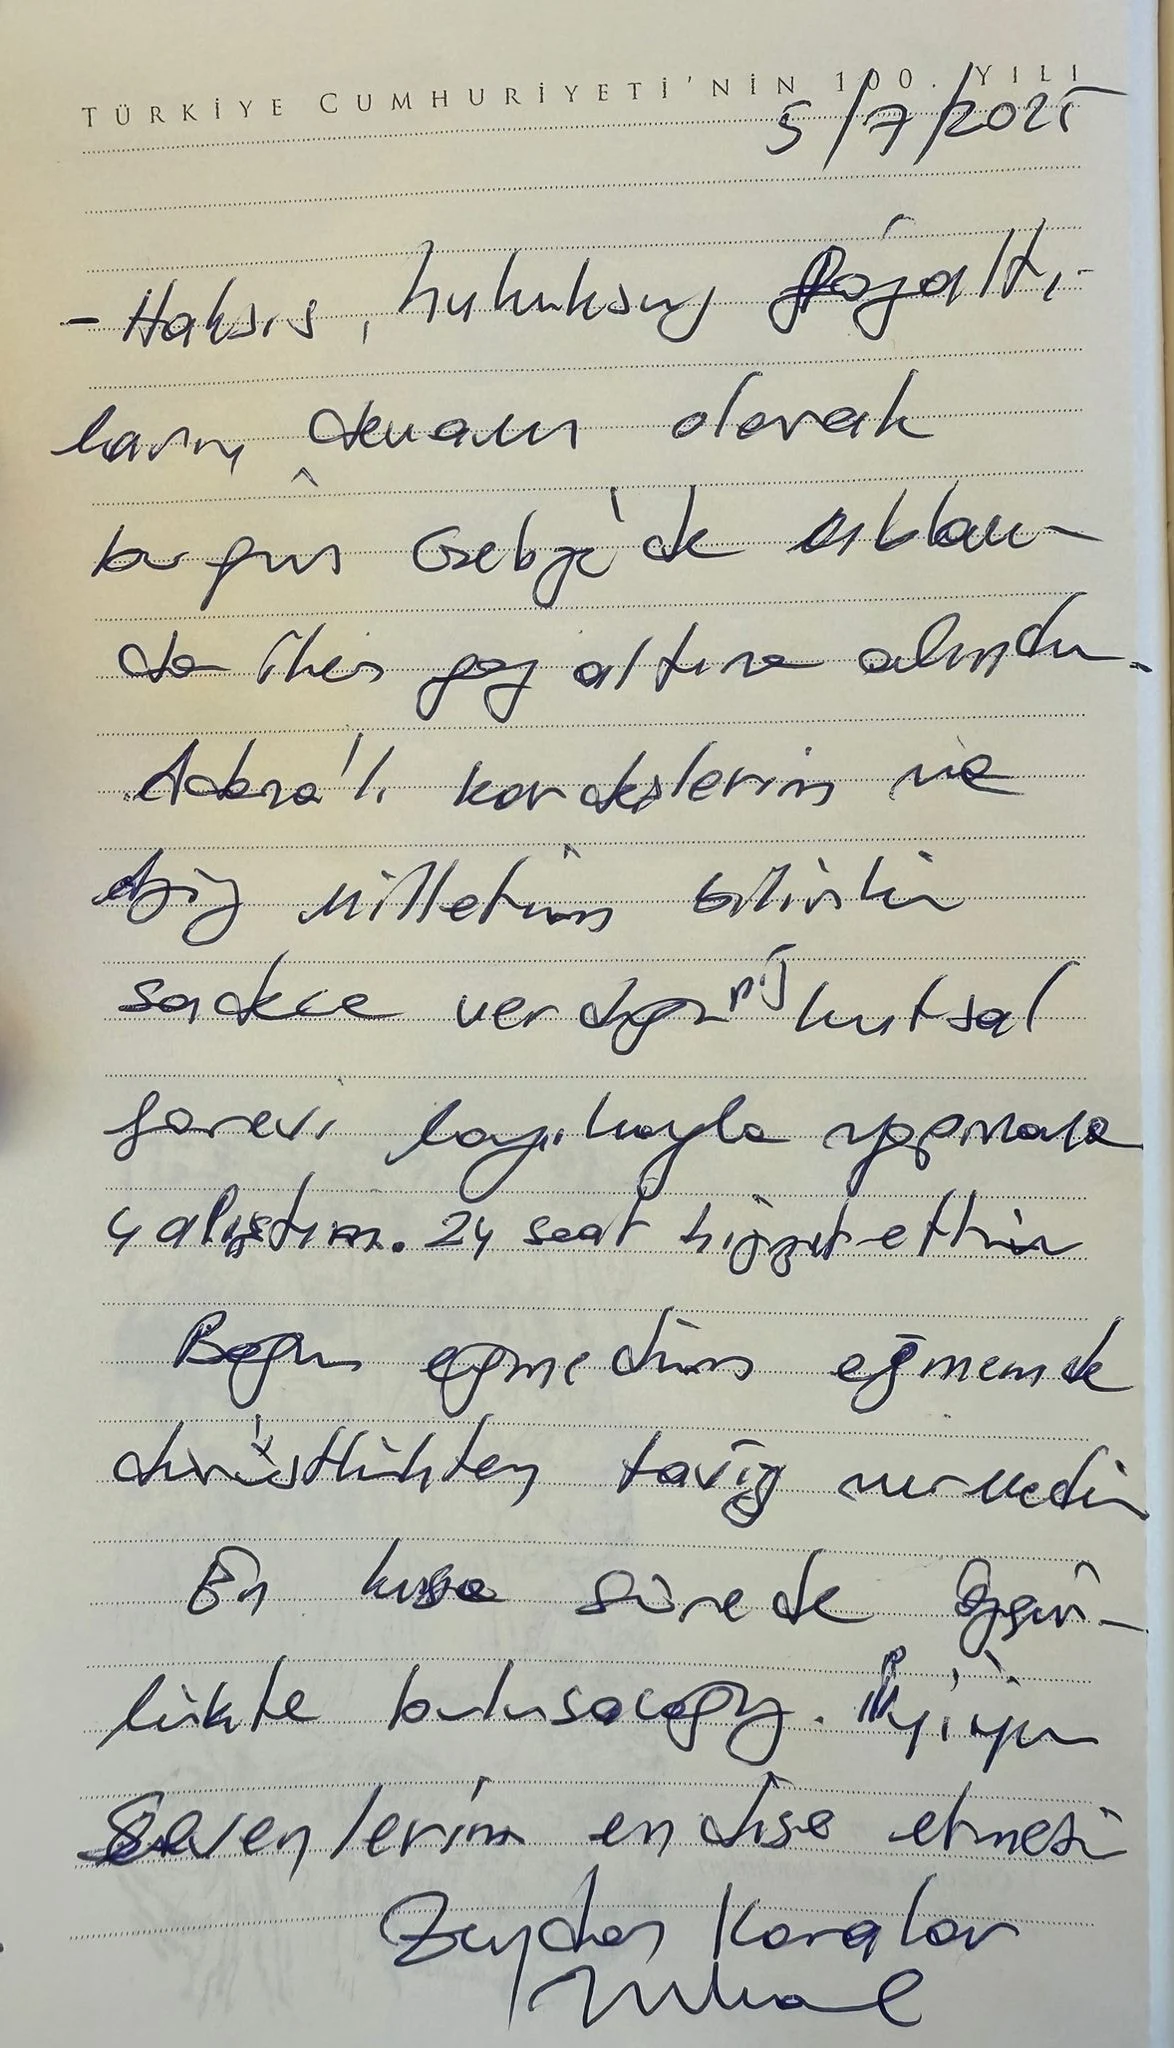 TÜRKİYE CUMHURİYETİ'NİN 100. YILI
5/7/2025
- Haksız, hukuksuz gözaltı-
ların devamı olarak
bugün Gebze'de
gözaltına alındım.
Adana'lı kardeşlerim ve
aziz milletim bilsin ki
sadece verdiğiniz kutsal
görevi layıkıyla yapmaya
çalıştım. 24 saat hizmet ettim
Boyun eğmedim eğmem de
dürüstlükten taviz vermedim
En kısa sürede özgür-
lükte buluşacağız. iyiyim
Sevenlerim endişe etmesin
Zeydan Karalar